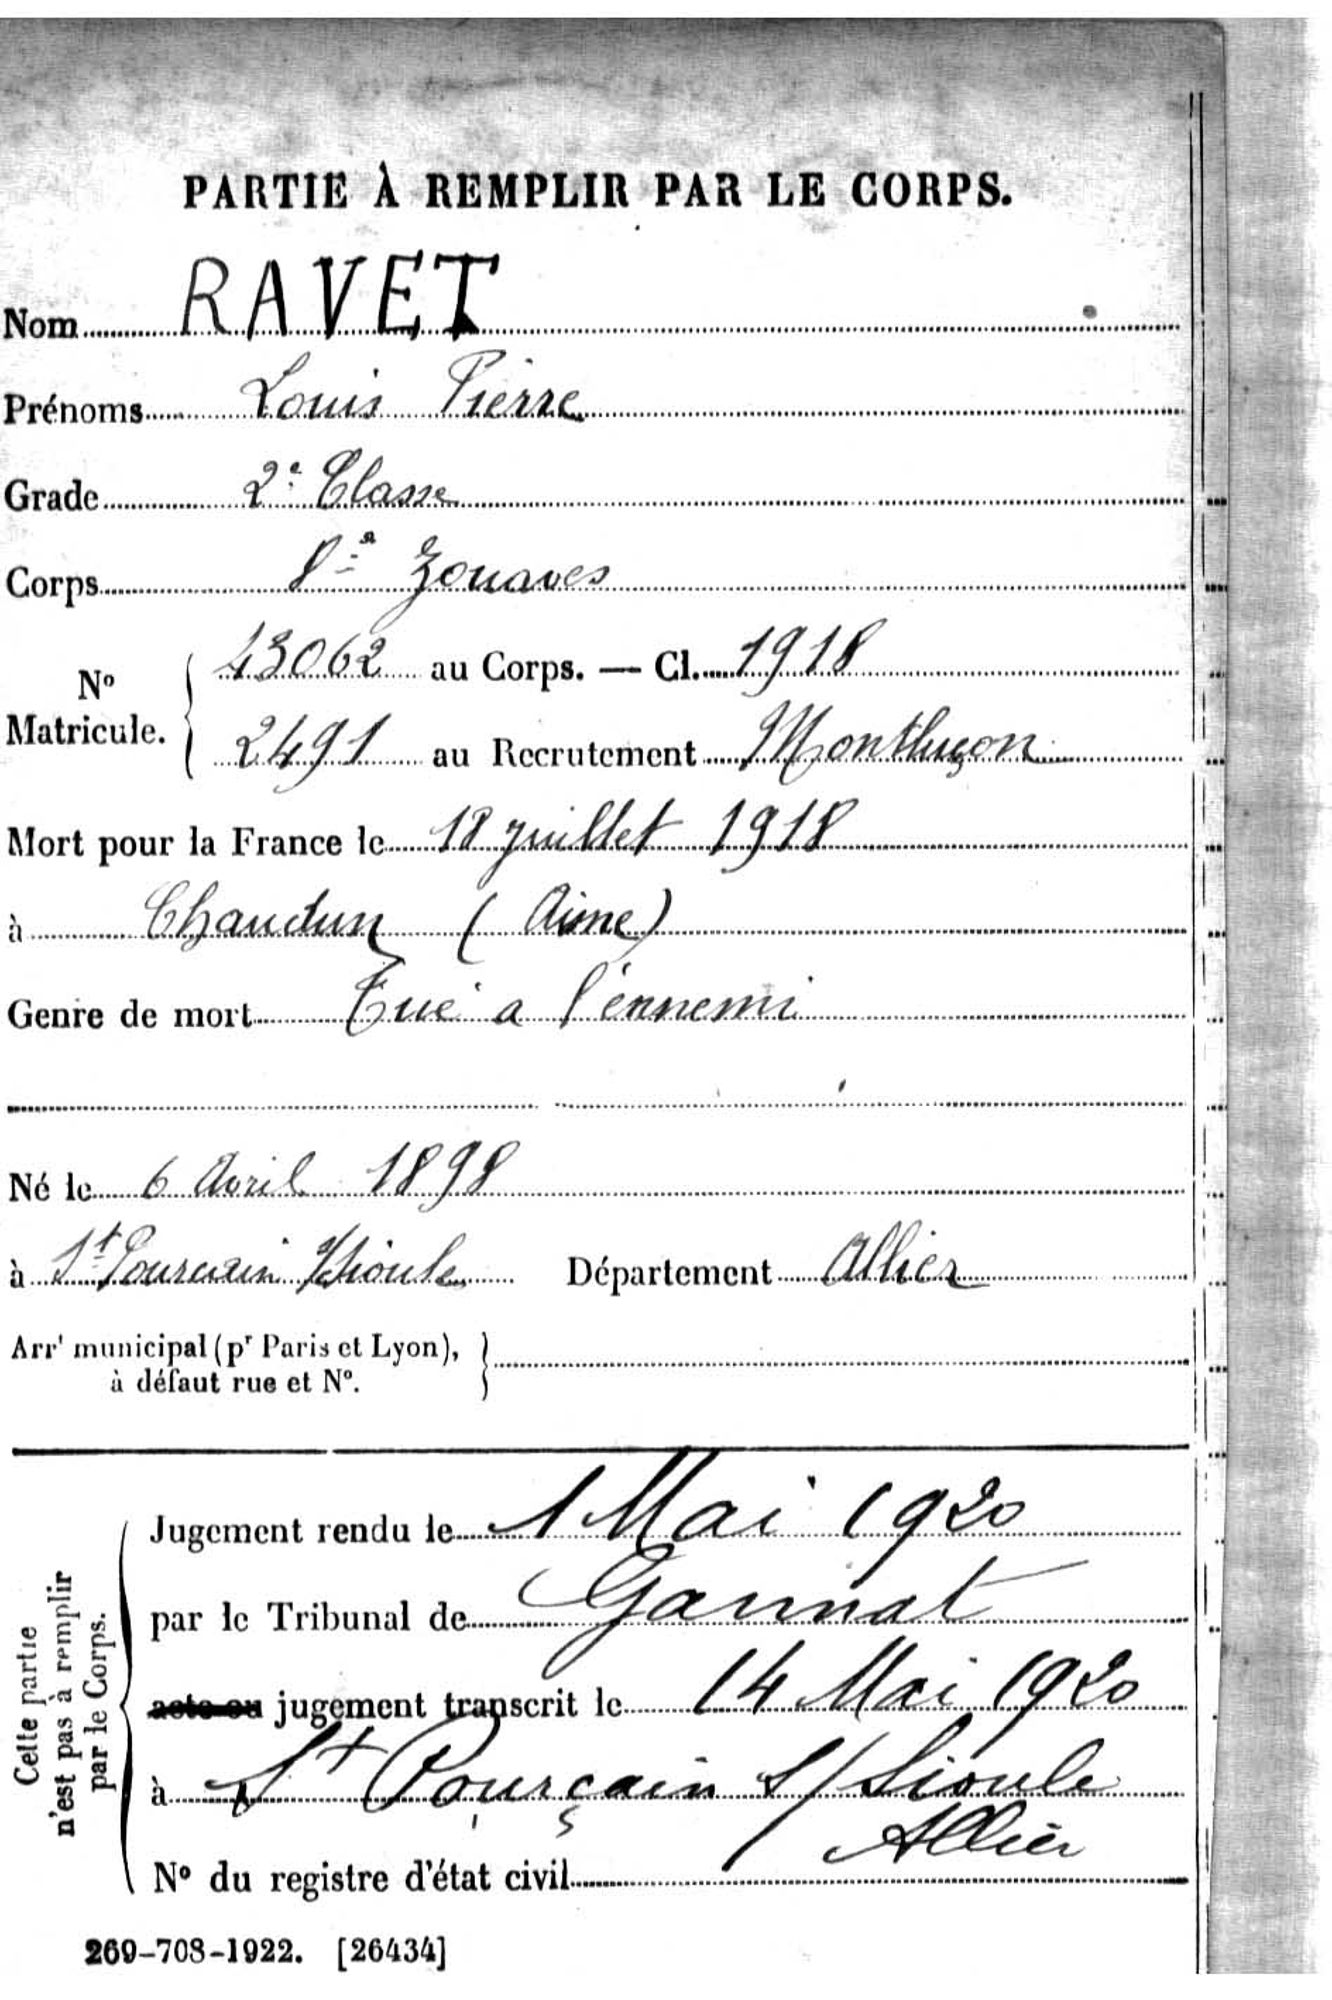 PARTIE À REMPLIR PAR LE CORPS.
Nom RAVET
Prénoms Louis Pierre
Grade 2e Classe
Corps 8e Zouaves
No Matricule. { 43062 au Corps. — Cl. 1918
2491 au Recrutement Montluçon
Mort pour la France le 18 juillet 1918
à Chaudun (Aisne)
Genre de mort Tué a l'énnemi
Né le 6 Avril 1898
à St Pourcain s/Sioule Département Allier
Arrt municipal (pr Paris et Lyon), }
à défaut rue et No.
Cette partie
n'est pas à remplir
par le Corps.
Jugement rendu le 1 Mai 1920
par le Tribunal de Gannat
acte ou jugement transcrit le 14 Mai 1920
à St Pourçain s/Sioule
Allier
No du registre d'état civil
269-708-1922. [26434]